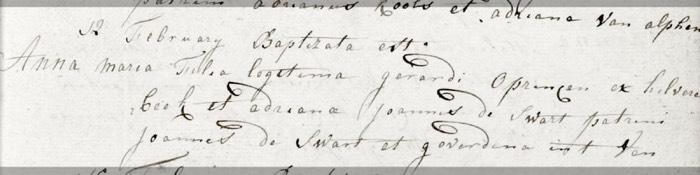 patrini adrianus Roots et adriana Van alphen
12 February Baptizata est.
Anna maria Filia legitema gerardi Oprinsen ex hilvere
beek et adriana Joannes de Swart patrini
Joannes de Swart et goverdena Van